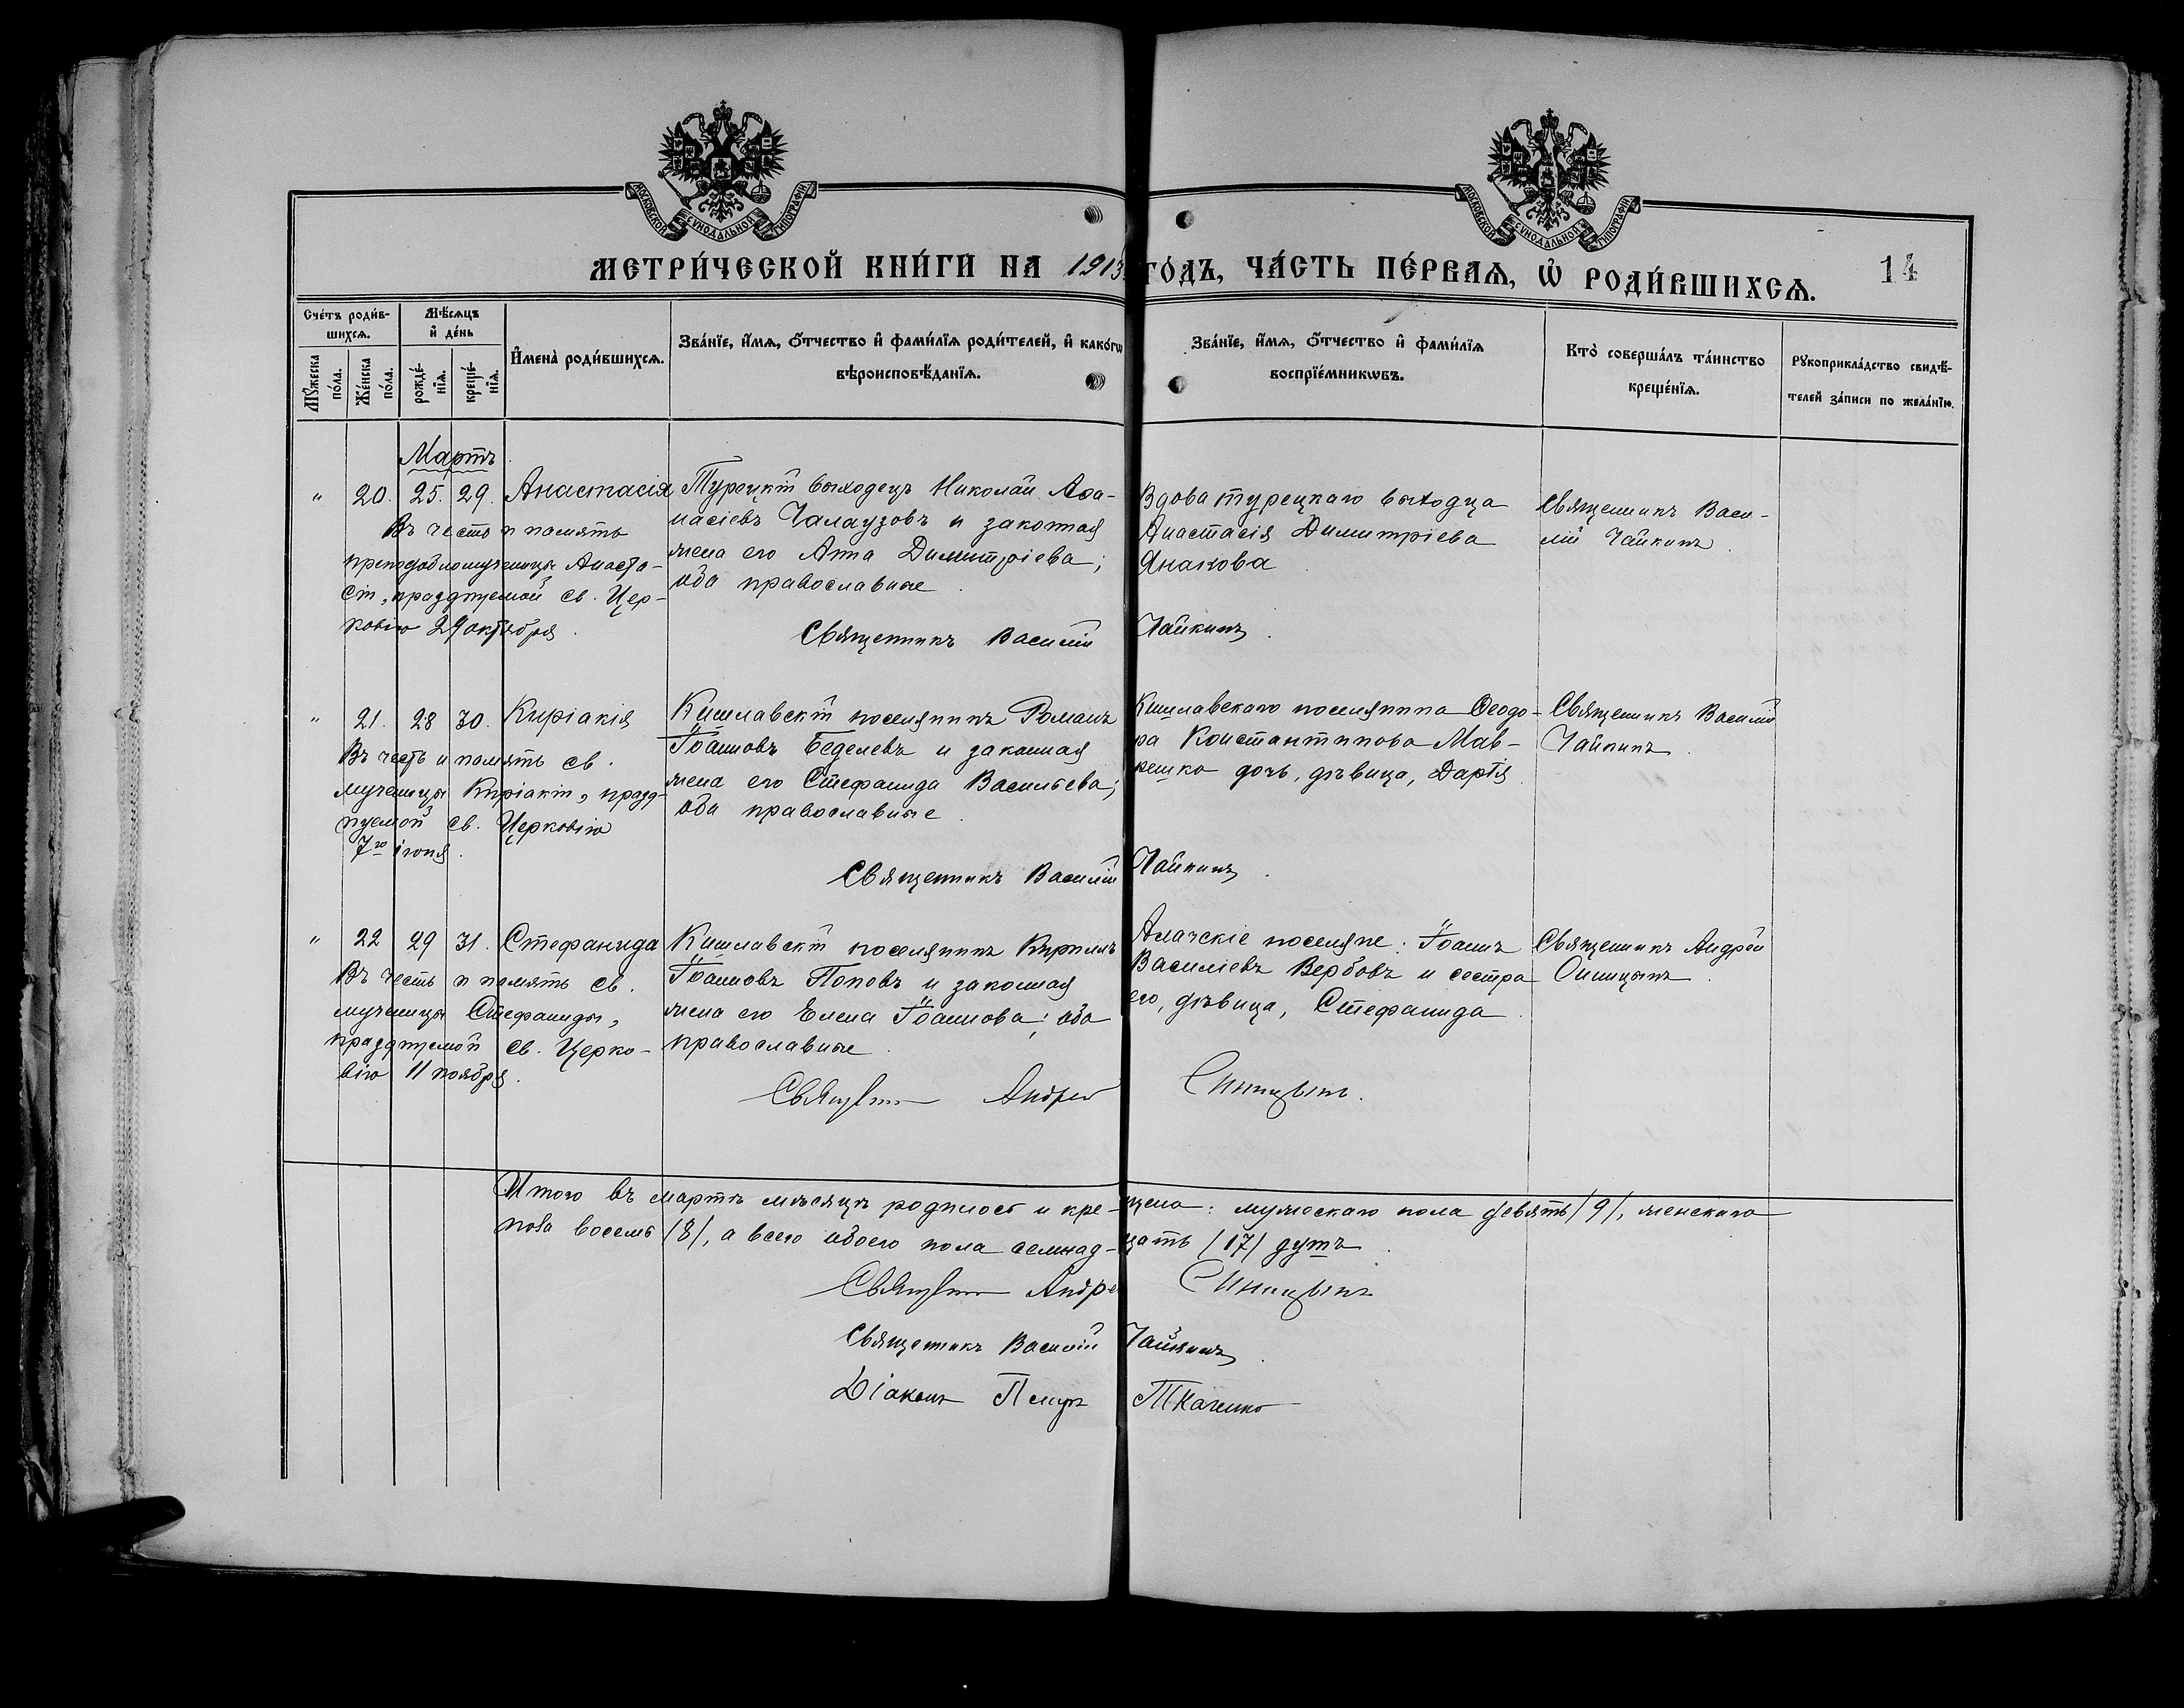 МОСКОВСКОЙ СУНОДАЛЬНОЙ ТИПОГРАФІИ
МОСКОВСКОЙ СУНОДАЛЬНОЙ ТИПОГРАФІИ
МЕТРИ́ЧЕСКОЙ КНИ́ГИ НА 1913 ГО́ДЪ, ЧА́СТЬ ПЕ́РВАѦ, Ѡ҆ РОДИ́ВШИХСѦ.
14
Сче́тъ роди́в-
шихсѧ.
Мꙋ́жеска по́ла.
Же́нска по́ла.
Мѣ́сѧцъ
и҆ де́нь
рожде́-
нїѧ.
креще́-
нїѧ.
И҆мена̀ роди́вшихсѧ.
Зва́нїе, и҆́мѧ, ѻ҆́тчество и҆ фами́лїѧ роди́телей, и҆ како́гѡ
вѣроисповѣ́данїѧ.
Зва́нїе, и҆́мѧ, ѻ҆́тчество и҆ фами́лїѧ
воспрїе́мникѡвъ.
Кто̀ соверша́лъ та́инство
креще́нїѧ.
Рꙋкоприкла́дство свидѣ́-
телей за́писи по жела́нїю.
Мартъ
" 20. 25. 29. Анастасія
Въ честь и память
преподобномученицы Анаста-
сіи, празднуемой св. Цер-
ковію 29 октября.
Турецкій выходецъ Николай Аѳа-
насіевъ Чалаузовъ и законная
жена его Анна Димитріева;
оба православные.
Вдова турецкаго выходца
Анастасія Димитріева
Янакова.
Священникъ Васи-
лій Чайкинъ.
Священникъ Василій Чайкинъ.
" 21. 28 30. Киріакія
Въ честь и память св.
мученицы Киріакіи, празд-
нуемой св. Церковію
7го іюня.
Кишлавскій поселянинъ Романъ
Іоанновъ Беделевъ и законная
жена его Стефанида Васильева;
оба православные.
Кишлавскаго поселянина Ѳеодо-
ра Константинова Мав-
решко дочь, дѣвица, Дарія
Священникъ Василій
Чайкинъ.
Священникъ Василій Чайкинъ.
" 22 29 31. Стефанида
Въ честь и память св.
мученицы Стефаниды,
празднуемой св. Церко-
вію 11 ноября.
Кишлавскій поселянинъ Кириллъ
Іоанновъ Поповъ и законная
жена его Елена Іоаннова; оба
православные.
Алачскіе поселяне: Іоаннъ
Василіевъ Вербовъ и сестра
его, дѣвица, Стефанида.
Священникъ Андрей
Синицынъ.
Священникъ Андрей Синицынъ.
Итого въ мартѣ мѣсяцѣ родилось и кре-щено: мужескаго пола девять /9/, женскаго
пола восемь /8/, а всего обоего пола семнад-цать /17/ душъ.
Священникъ Андрей Синицынъ
Священникъ Василій Чайкинъ.
Діаконъ Петръ Ткаченко